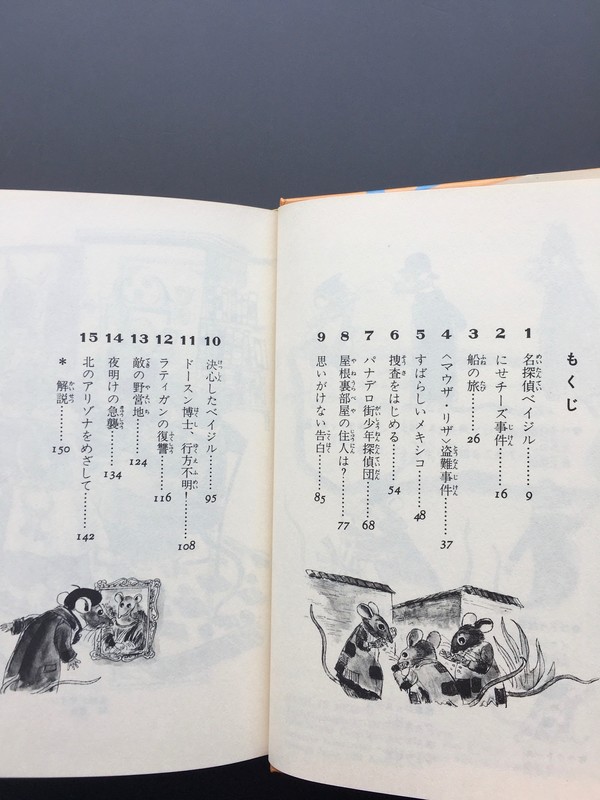 もくじ
1 名探偵ベイジル……9
2 にせチーズ事件……16
3 船の旅……26
4 〈マウザ・リザ〉盗難事件……37
5 すばらしいメキシコ……48
6 捜査をはじめる……54
7 パナデロ街少年探偵団……68
8 屋根裏部屋の住人は?……77
9 思いがけない告白……85
10 決心したベイジル……95
11 ドースン博士、行方不明!……108
12 ラティガンの復讐……116
13 敵の野営地……124
14 夜明けの急襲……134
15 北のアリゾナをめざして……142
* 解説……150